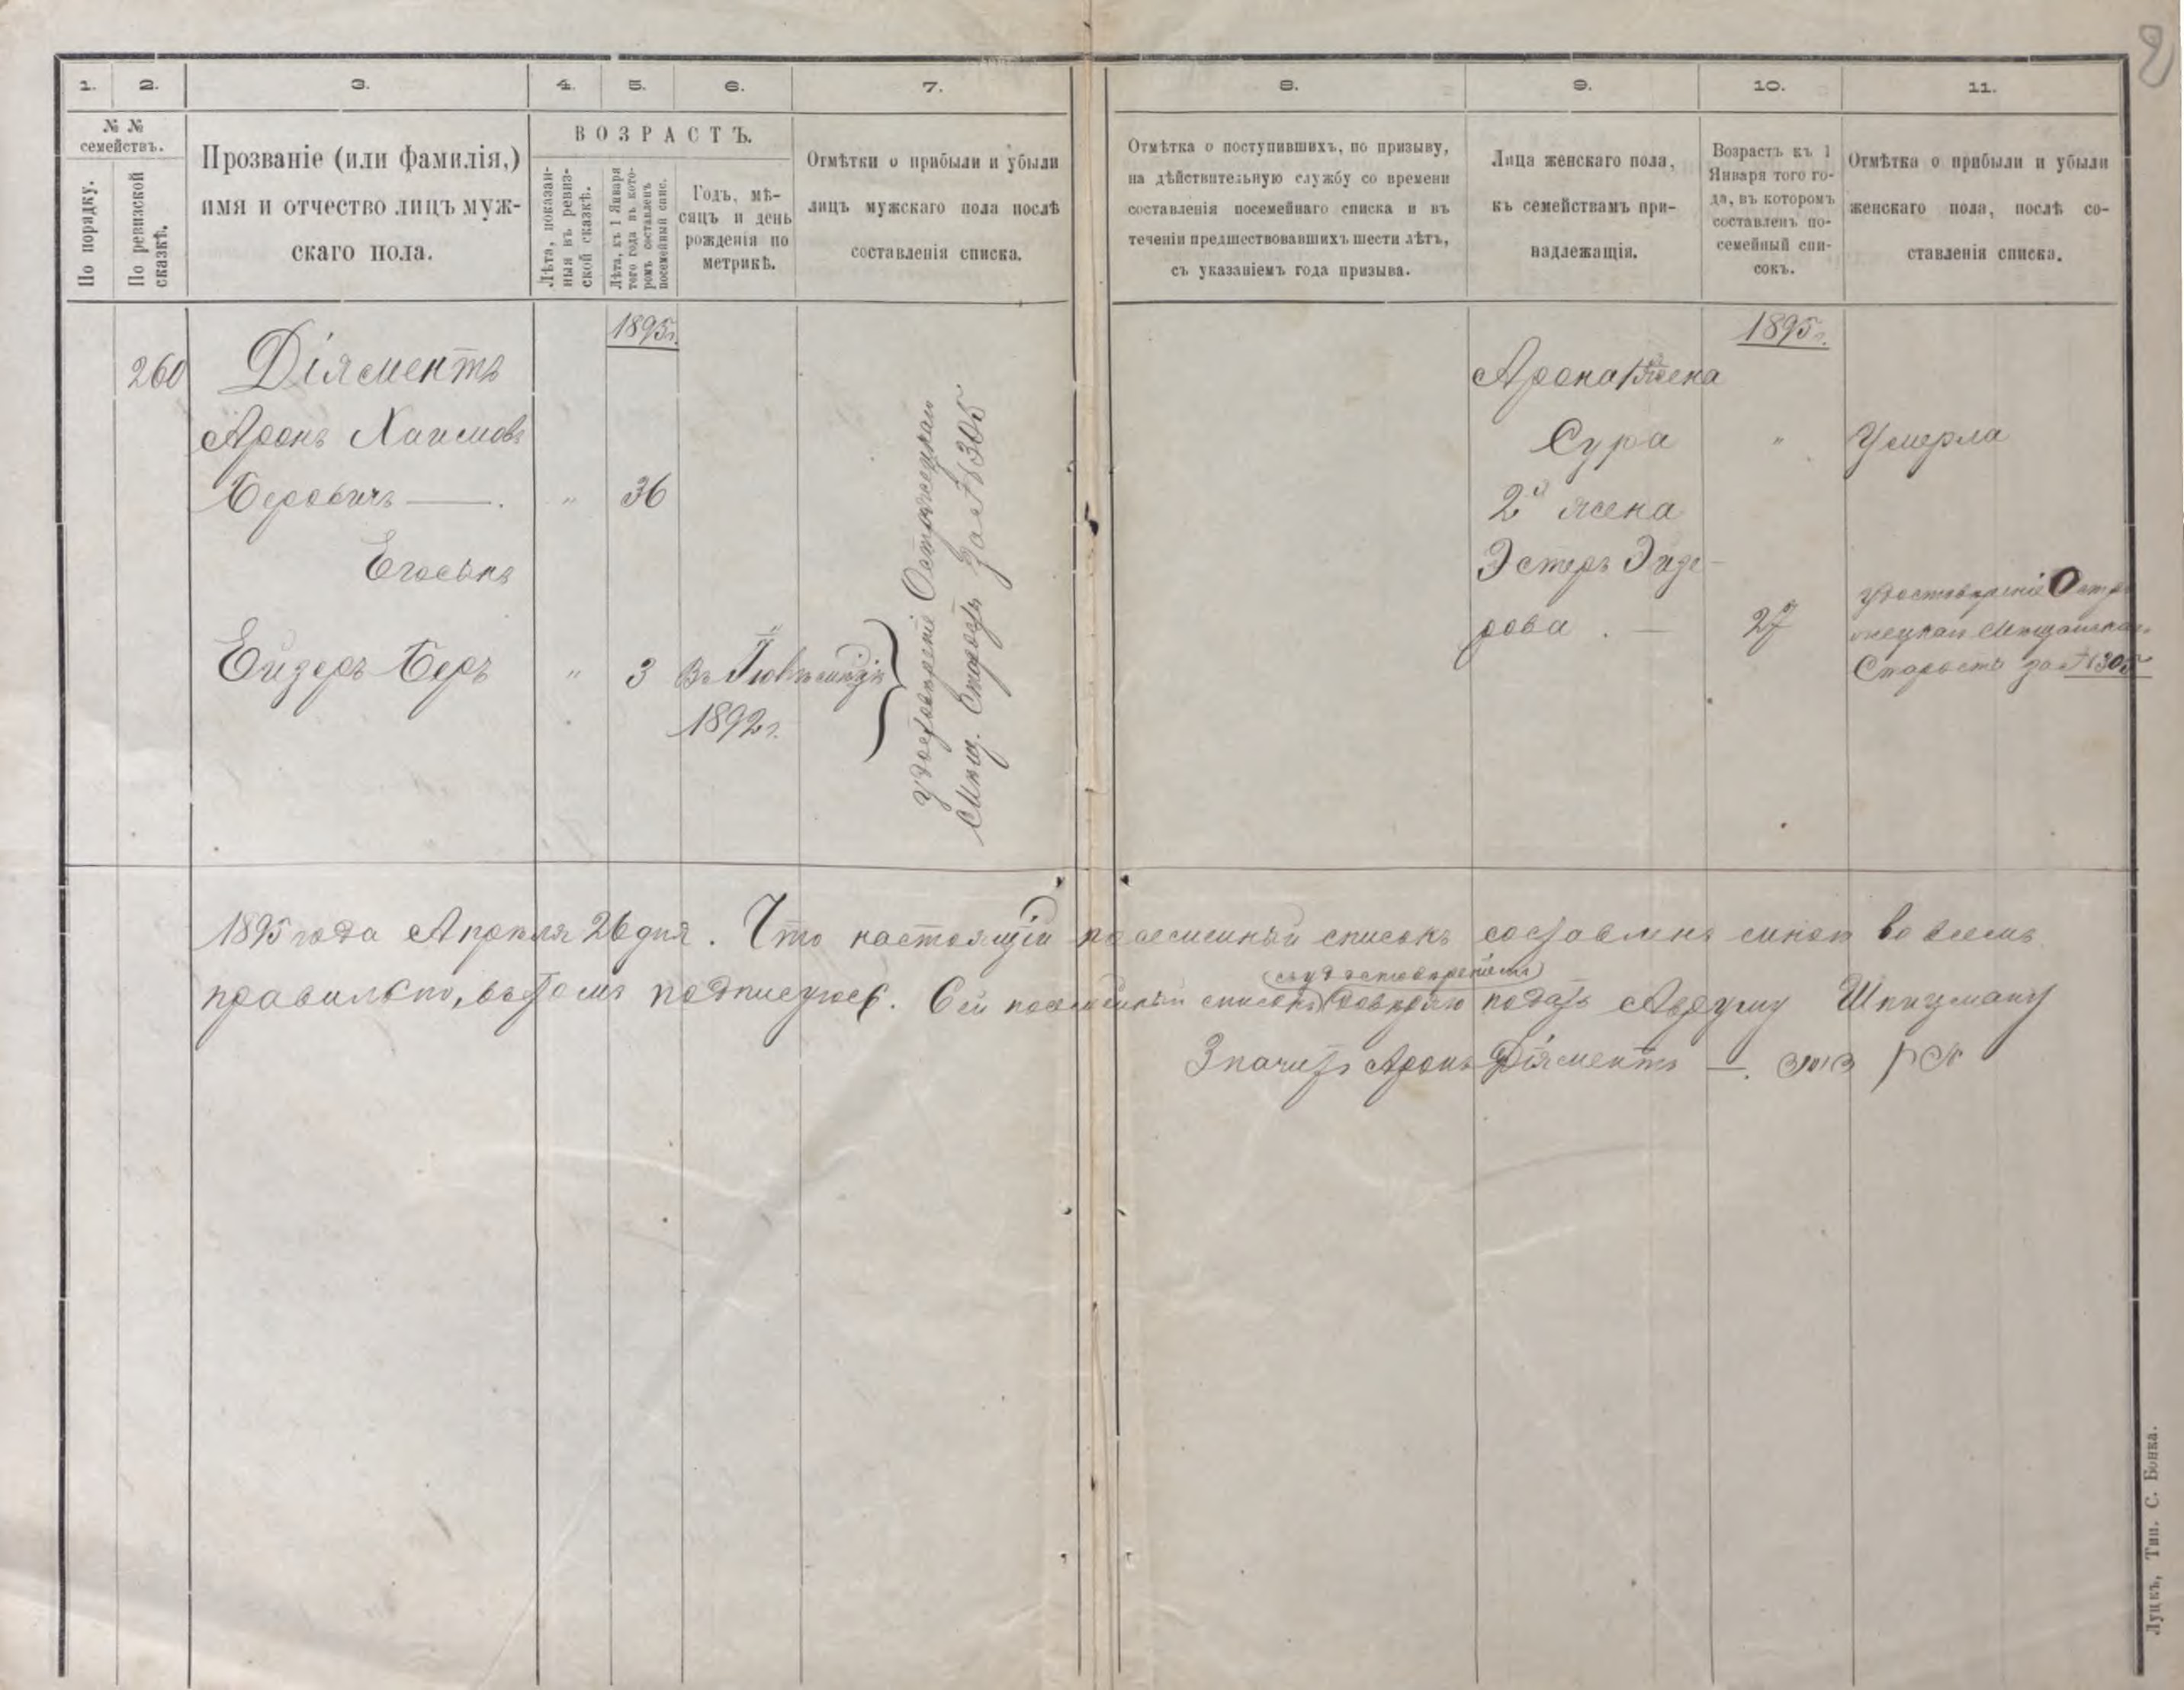 2
1. 2. 3. 4. 5. 6. 7. 8. 9. 10. 11.
№ №
семействъ.
По порядку.
По ревизской
сказкѣ.
Прозваніе (или фамилія,)
имя и отчество лицъ муж-
скаго пола.
ВОЗРАСТЪ.
Лѣта, показан-
ныя въ ревиз-
ской сказкѣ.
Лѣта, къ 1 Января
того года въ кото-
ромъ составленъ
посемейный спис.
Годъ, мѣ-
сяцъ и день
рожденія по
метрикѣ.
Отмѣтки о прибыли и убыли
лицъ мужскаго пола послѣ
составленія списка.
Отмѣтка о поступившихъ, по призыву,
на дѣйствительную службу со времени
составленія посемейнаго списка и въ
теченіи предшествовавшихъ шести лѣтъ,
съ указаніемъ года призыва.
Лица женскаго пола,
къ семействамъ при-
надлежащія.
Возрастъ къ 1
Января того го-
да, въ которомъ
составленъ по-
семейный спи-
сокъ.
Отмѣтка о прибыли и убыли
женскаго пола, послѣ со-
ставленія списка.
1895г.
260 Діяментъ
Аронъ Хаимовъ
Беровичъ — . " 36
Его сынъ
Ейзеръ Беръ " 3
1892г.
Мѣщ. Старосты за № 305
1895г.
Арона 1я жена
Сура " Умерла
2я жена
Эстеръ Эйзе-
рова . — 27
Удостовѣреніе Остро
жецкаго Мѣщанскаго
Старосты за № 305
1895 года Апрѣля 26 дня. Что настоящій посемейный списокъ составленъ мною во всемъ
(съ удостовѣреніемъ)
правильно, въ томъ подписуюсь. Сей посемейный списокъ довѣряю подать Шпицману
Значитъ Аронъ Діяментъ —.
Луцкъ, Тип. С. Бонка.